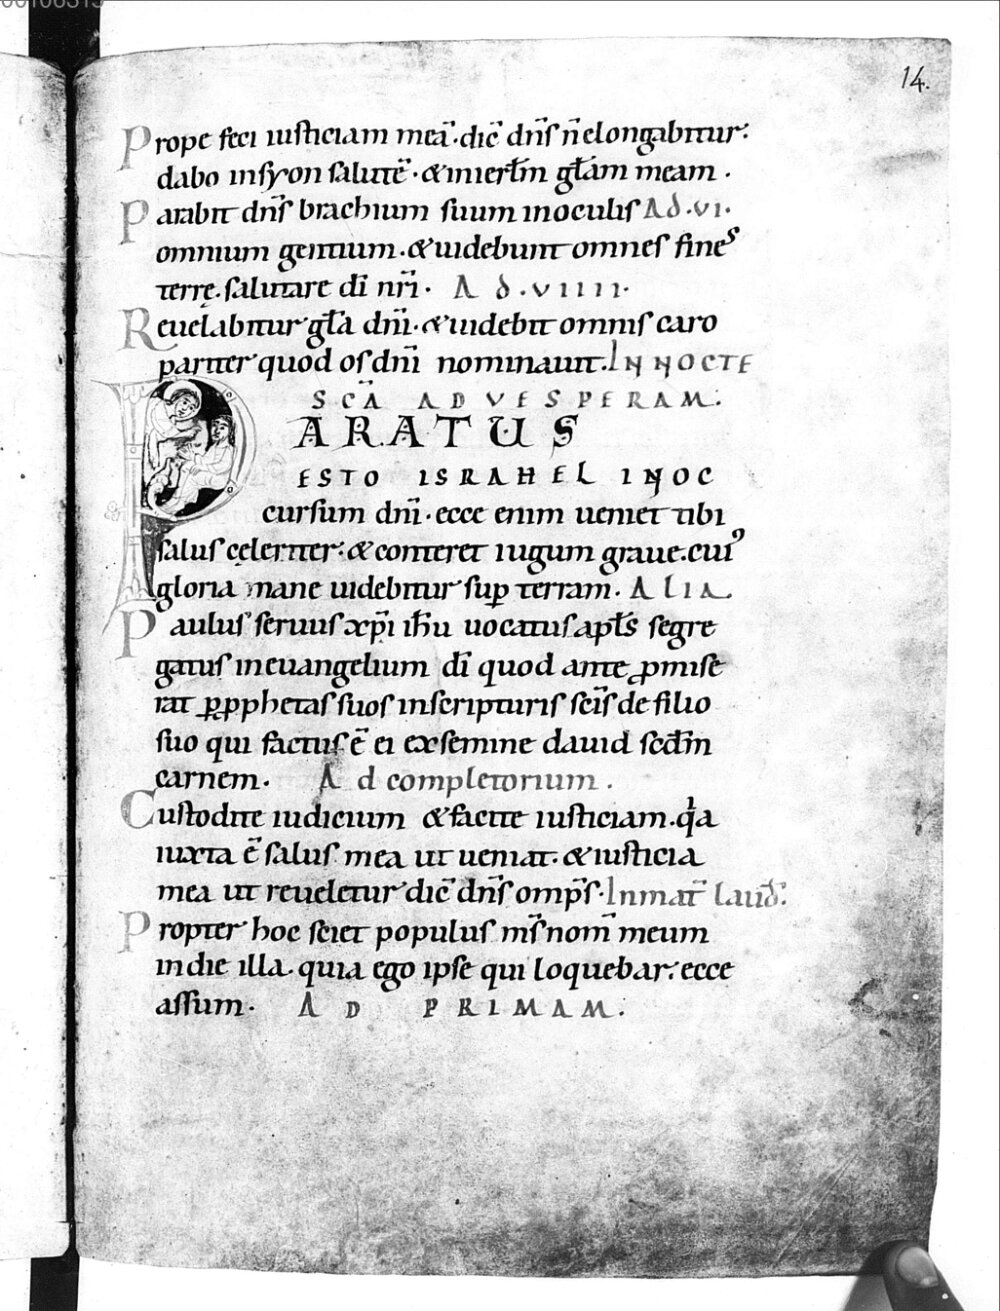 14.
Prope feci iusticiam meā. dic̄ dn̄s n̄ elongabitur:
dabo insyon salutē. & inierl̄m gl̄am meam.
Parabit dn̄s brachium suum inoculis Ad.vi.
omnium gentium. & uidebunt omnes fines
terrę. salutare dī nr̄i. Ad.viiii.
Reuelabitur gl̄a dn̄i. & uidebit omnis caro
pariter quod os dn̄i nominauit. IN NOCTE
SCĀ AD VESPERAM:
PARATUS
ESTO ISRAHEL INOC
cursum dn̄i. ecce enim ueniet tibi
salus cęleriter: & conteret iugum graue. cuiꝰ
gloria mane uidebitur suꝑ terram. ALIA
Paulus seruus xp̄i ih̄u uocatus apl̄s segre
gatus ineuangelium dī quod ante ꝓmise
rat ꝑ ꝓphetas suos inscripturis sc̄is de filio
suo qui factus ē ei exsemine dauid scd̄m
carnem. Ad completorium.
Custodite iudicium & facite iusticiam. qͥa
iuxta ē salus mea ut ueniat. & iusticia
mea ut reueletur dic̄ dn̄s omp̄s. Inmat̄ laud̄.
Propter hoc sciet populus m̄s nom̄ meum
indie illa. quia ego ipse qui loquebar: ecce
assum. AD PRIMAM: